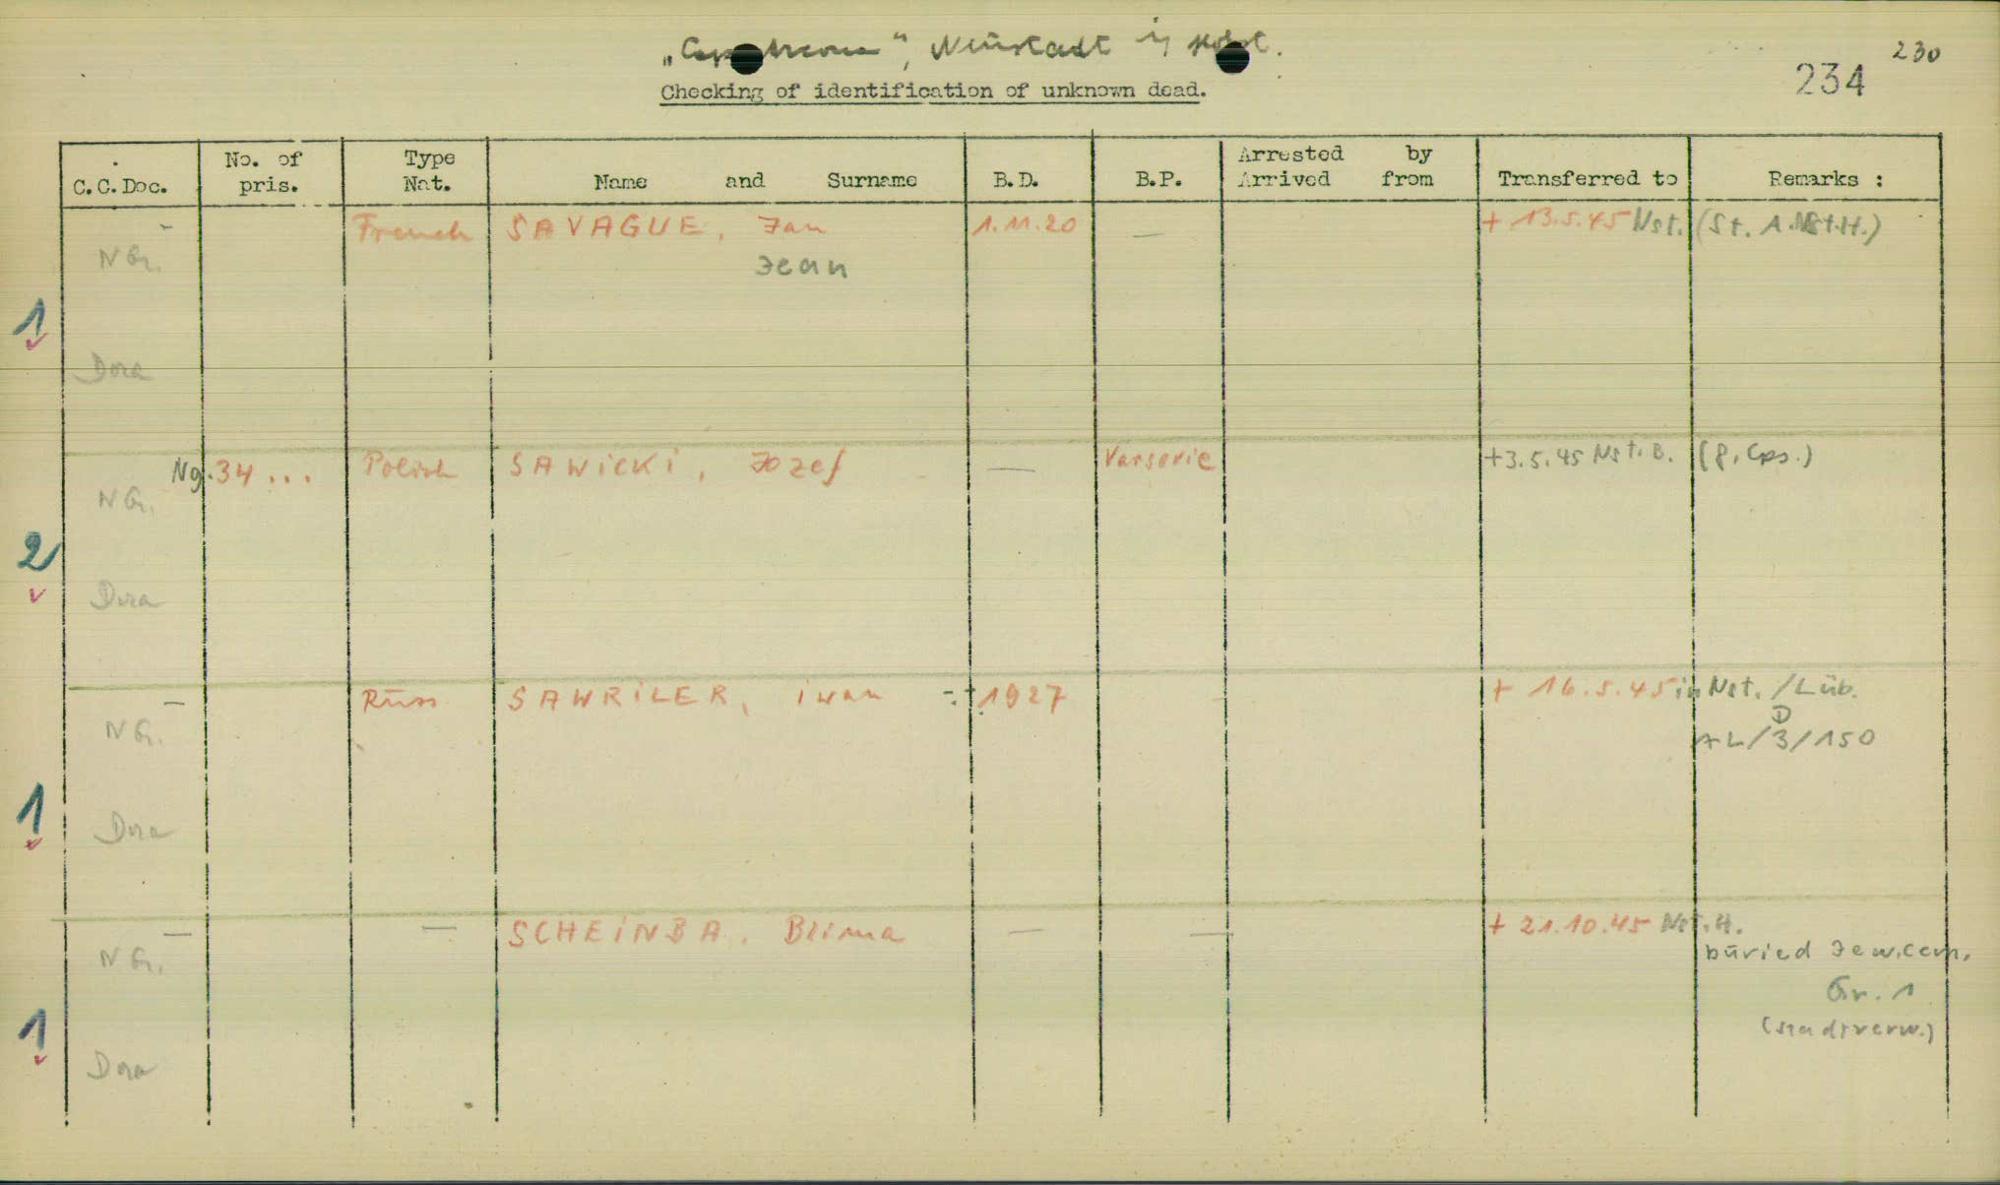 „Cap Arcona", Neustadt i/ Holst.
230
234
Checking of identification of unknown dead.
C.C.Doc. No. of pris. Type Nat. Name and Surname B.D. B.P. Arrested by Arrived from Transferred to Remarks :
– French SAVAGUE, Jan 1.11.20 — + 13.5.45 Nst. (St. A. Nst.H.)
N Gr. Jean
1
Dora
Ng. 34 ... Polish SAWICKI, Jozef — Varsovie +3.5.45 Nst. B. (P. Cps.)
N Gr.
2
Dora
– Russ SAWRILER, iwan 1927 + 16.5.45 in Nst. /Lüb.
N Gr. D
AL/3/150
1
Dora
– — SCHEINBA, Blima — — + 21.10.45 Nst.H.
N Gr. buried Jew.cem.
Gr. 1
1 (Stadtverw.)
Dora